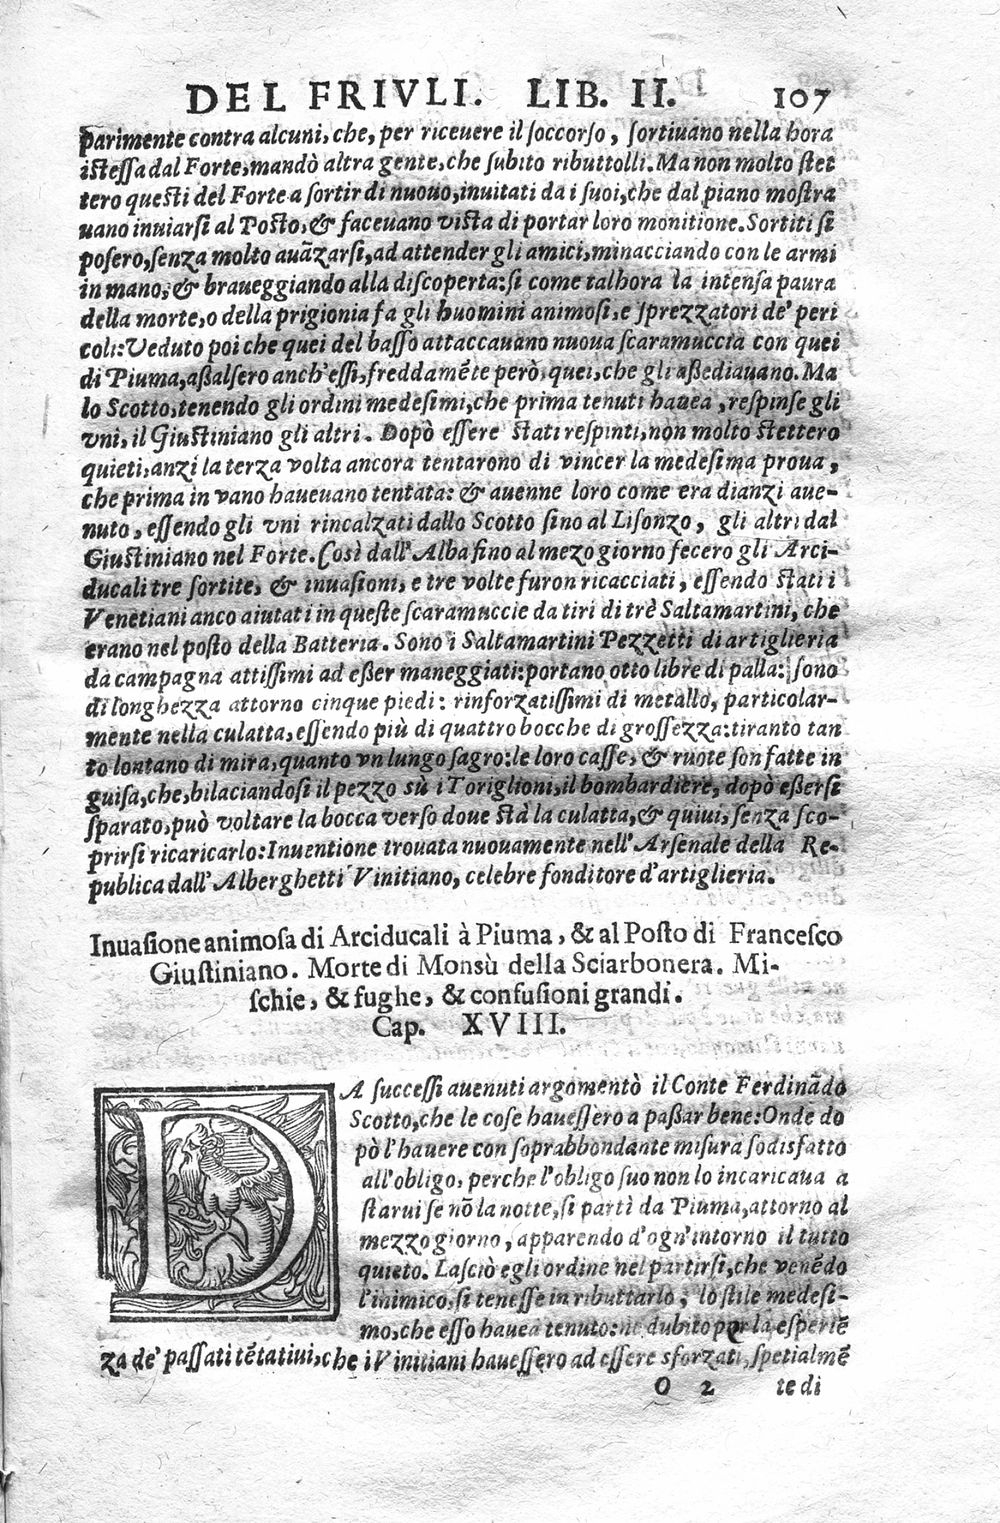 DEL FRIVLI. LIB. II. 107
parimente contra alcuni, che, per riceuere il soccorso, sortiuano nella hora
istessa dal Forte, mandò altra gente, che subito ributtolli. Ma non molto stet
tero questi del Forte a sortir di nuouo, inuitati da i suoi, che dal piano mostra
uano inuiarsi al Posto, & faceuano vista di portar loro monitione. Sortiti si
posero, senza molto auāzarsi, ad attender gli amici, minacciando con le armi
in mano, & braueggiando alla discoperta: si come talhora la intensa paura
della morte, o della prigionia fa gli huomini animosi, e sprezzatori de' peri
coli: Veduto poi che quei del basso attaccauano nuoua scaramuccia con quei
di Piuma, assalsero anch'essi, freddamēte però, quei, che gli assediauano. Ma
lo Scotto, tenendo gli ordini medesimi, che prima tenuti hauea, respinse gli
vni, il Giustiniano gli altri. Dopò essere stati respinti, non molto stettero
quieti, anzi la terza volta ancora tentarono di vincer la medesima proua,
che prima in vano haueuano tentata: & auenne loro come era dianzi aue-
nuto, essendo gli vni rincalzati dallo Scotto sino al Lisonzo, gli altri dal
Giustiniano nel Forte. Così dall'Alba fino al mezo giorno fecero gli Arci-
ducali tre sortite, & inuasioni, e tre volte furon ricacciati, essendo stati i
Venetiani anco aiutati in queste scaramuccie da tiri di trè Saltamartini, che
erano nel posto della Batteria. Sono i Saltamartini Pezzetti di artiglieria
da campagna attissimi ad esser maneggiati: portano otto libre di palla: sono
di longhezza attorno cinque piedi: rinforzatissimi di metallo, particolar-
mente nella culatta, essendo più di quattro bocche di grossezza: tiranto tan
to lontano di mira, quanto vn lungo sagro: le loro casse, & ruote son fatte in
guisa, che, bilaciandosi il pezzo sù i Toriglioni, il bombardiere, dopò essersi
sparato, può voltare la bocca verso doue stà la culatta, & quiui, senza sco-
prirsi ricaricarlo: Inuentione trouata nuouamente nell'Arsenale della Re-
publica dall'Alberghetti Vinitiano, celebre fonditore d'artiglieria.
Inuasione animosa di Arciducali à Piuma, & al Posto di Francesco
Giustiniano. Morte di Monsù della Sciarbonera. Mi-
schie, & fughe, & confusioni grandi.
Cap. XVIII.
DA successi auenuti argomentò il Conte Ferdinādo
Scotto, che le cose hauessero a passar bene: Onde do
pò l'hauere con soprabbondante misura sodisfatto
all'obligo, perche l'obligo suo non lo incaricaua a
starui se nō la notte, si partì da Piuma, attorno al
mezzo giorno, apparendo d'ogn'intorno il tutto
quieto. Lasciò egli ordine nel partirsi, che venēdo
l'inimico, si tenesse in ributtarlo, lo stile medesi-
mo, che esso hauea tenuto: ne dubitò per la esperiē
za de' passati tētatiui, che i Vinitiani hauessero ad essere sforzati, spetialmē
O 2 te di